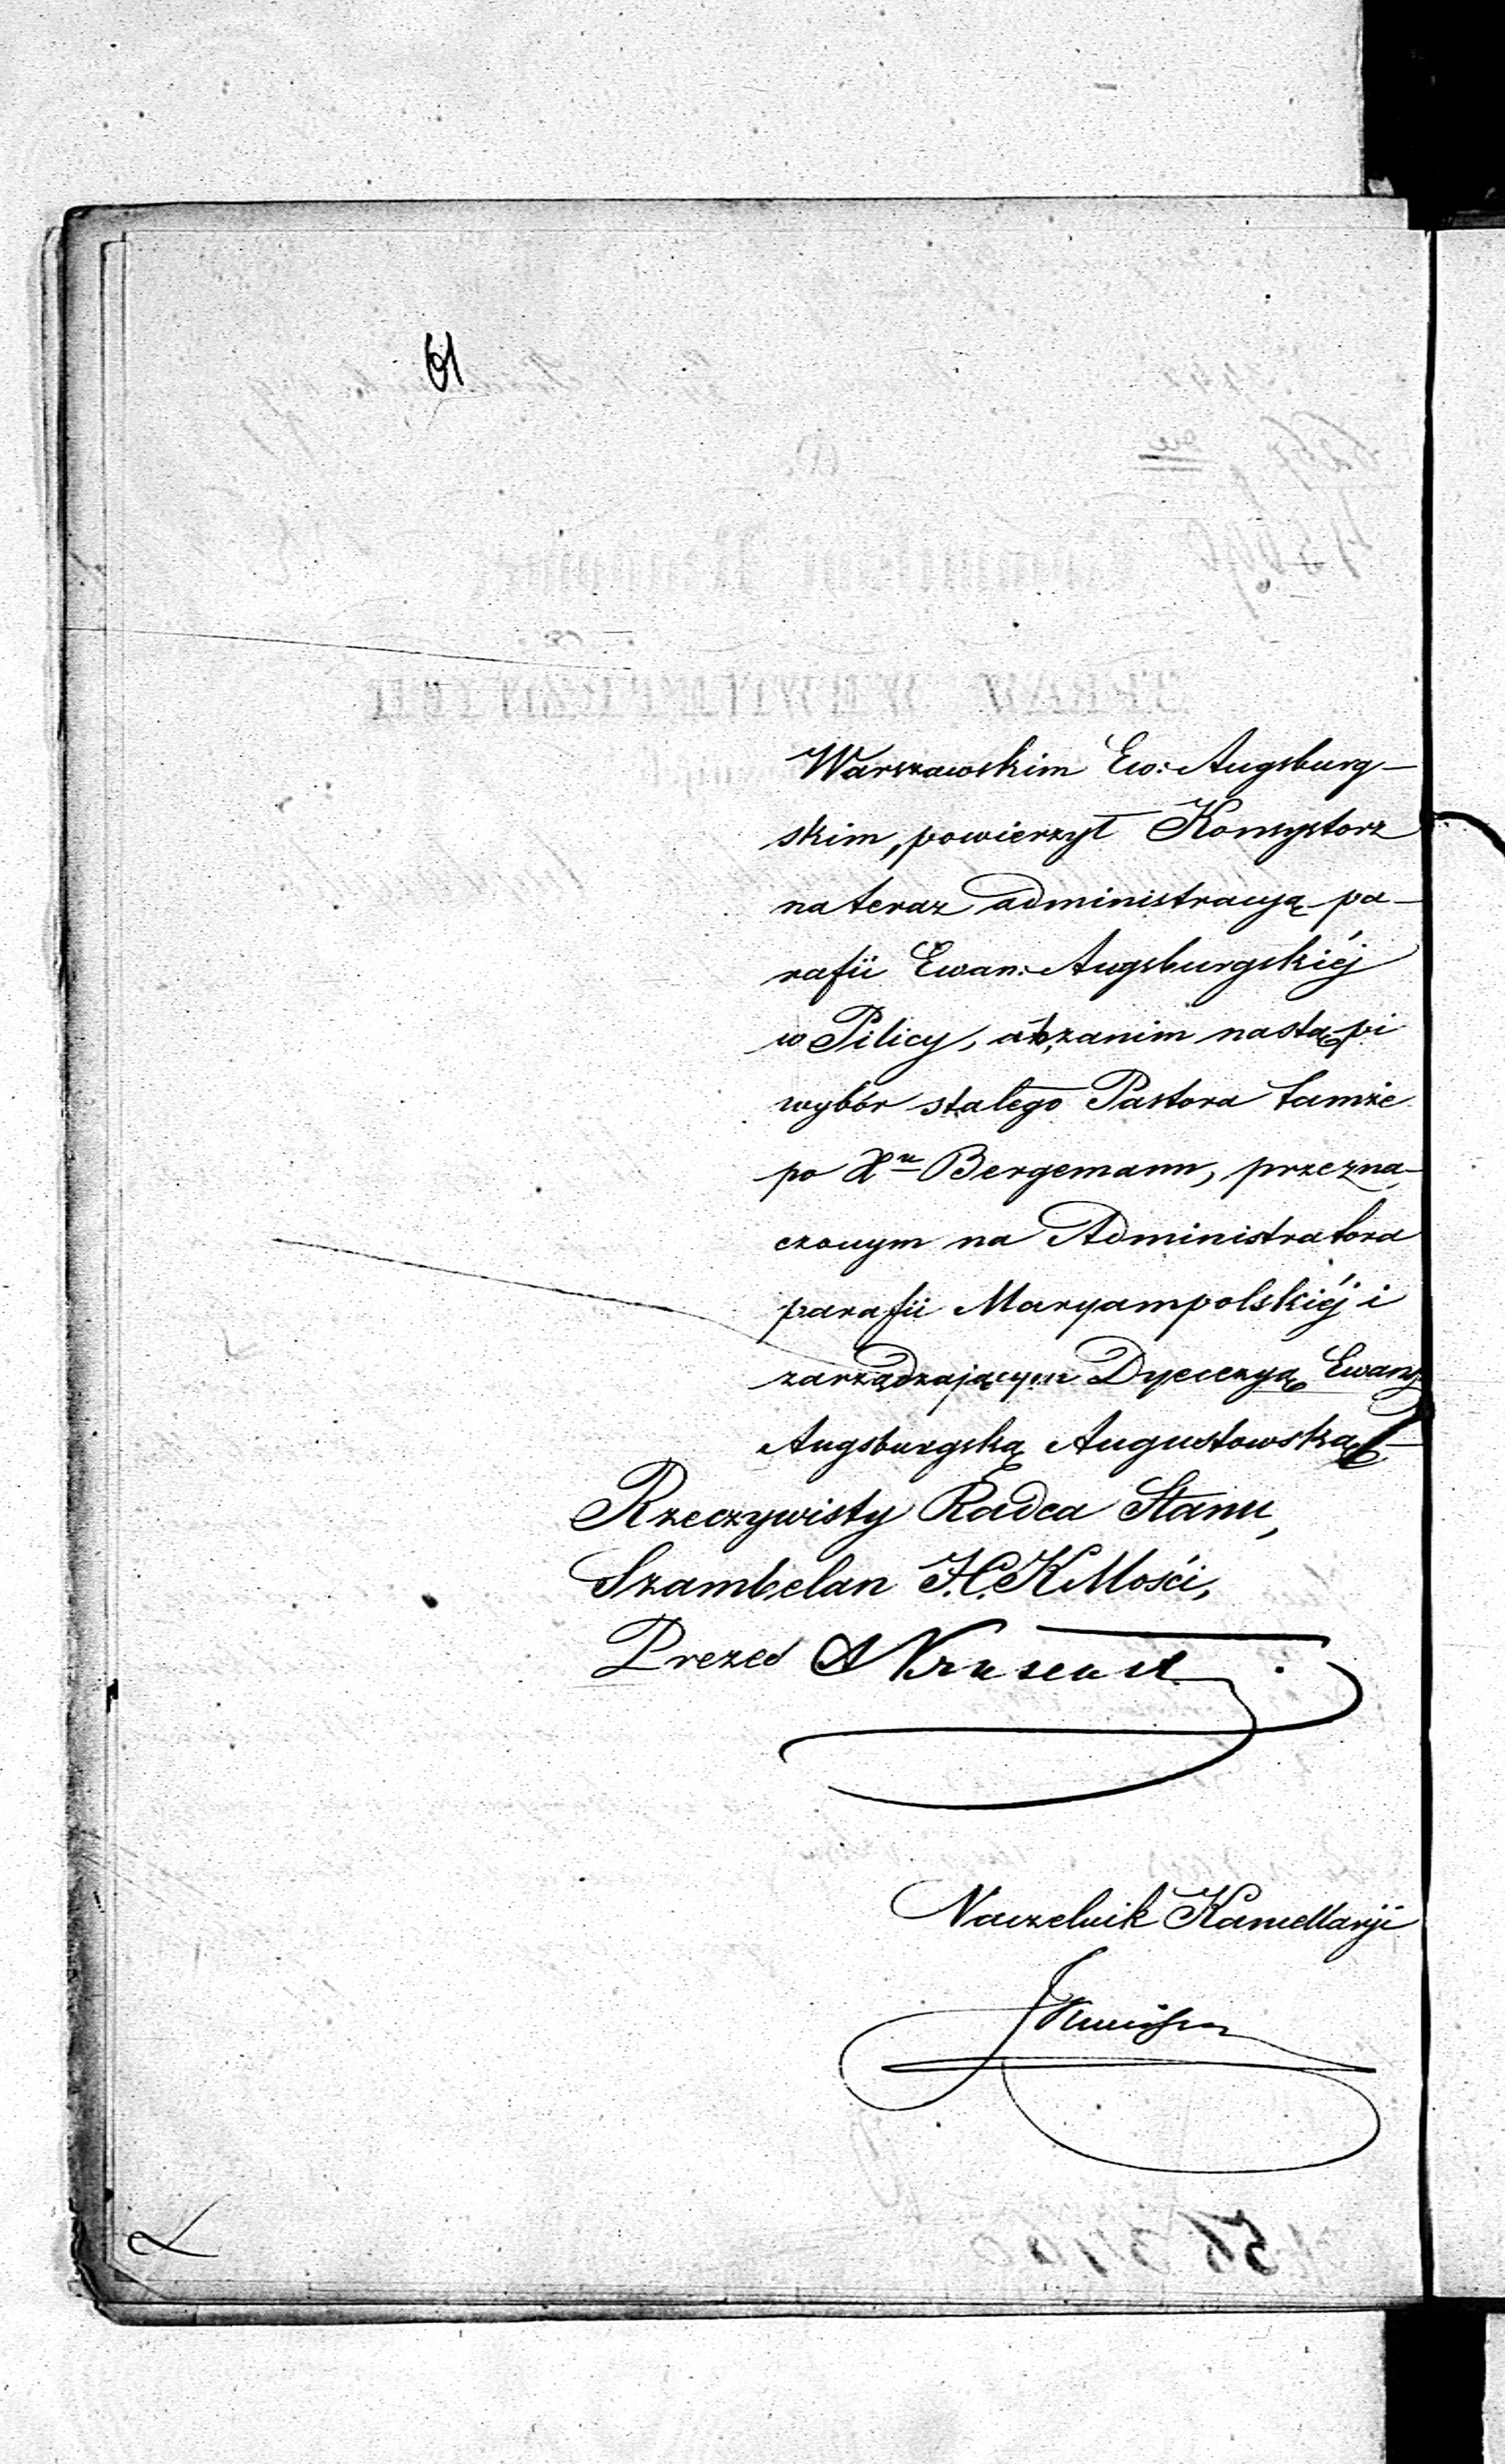 61
Warszawskim Ew: Augsburg-
skim, powierzył Konsystorz
na teraz administracyą pa-
rafii Ewan: Augsburgskiéj
w Pilicy, aż zanim nastąpi
wybór stałego Pastora tamże
po Xu Bergemann, przezna-
czonym na Administratora
parafii Maryampolskiéj i
zarządzającym Dyecezyą Ewang
Augsburgską Augustowską
Rzeczywisty Radca Stanu,
Szambelan J.C.K Mości,
Prezes
Naczelnik Kancellaryi